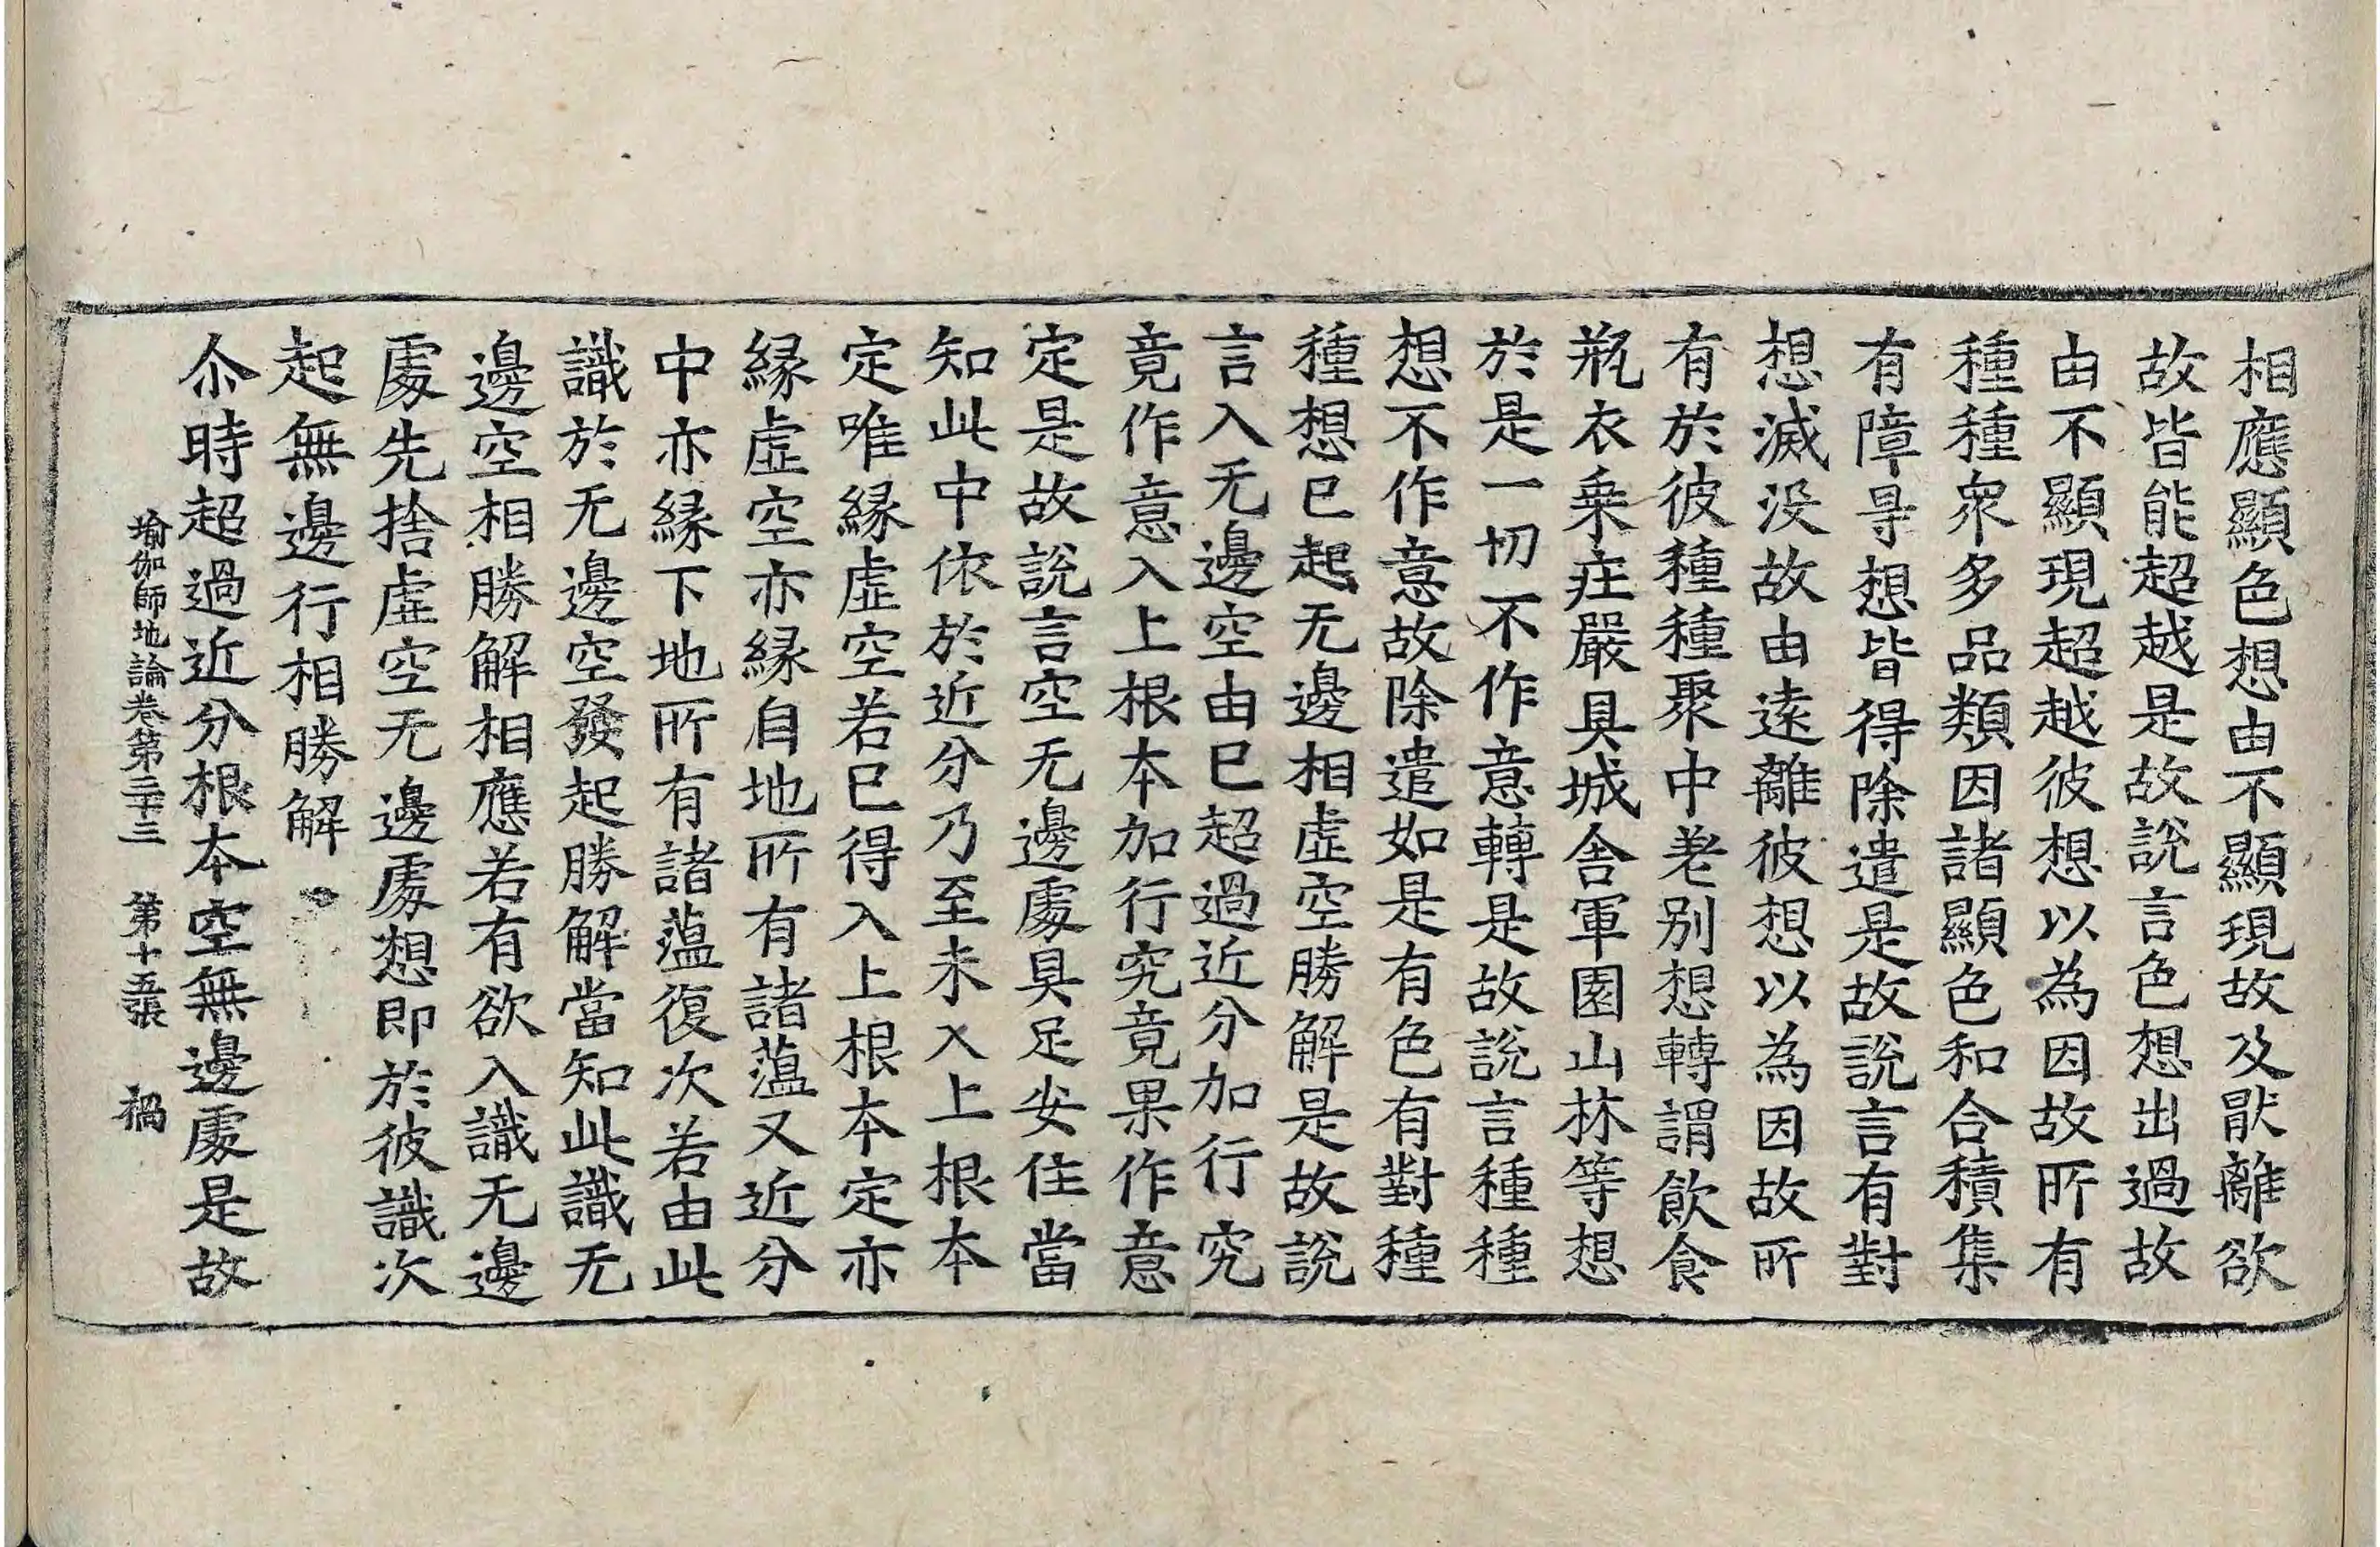 相應顯色想由不顯現故及猒離欲
故皆能超越是故說言色想出過故
由不顯現超越彼想以為因故所有
種種衆多品類因諸顯色和合積集
有障㝵想皆得除遣是故說言有對
想滅没故由遠離彼想以為因故所
有於彼種種聚中差别想轉謂飲食
瓶衣乗莊嚴具城舍軍園山林等想
於是一切不作意轉是故說言種種
想不作意故除遣如是有色有對種
種想已起无邊相虛空勝解是故說
言入无邊空由已超過近分加行究
竟作意入上根本加行究竟果作意
定是故說言空无邊處具足安住當
知此中依於近分乃至未入上根本
定唯緣虛空若已得入上根本定亦
緣虛空亦緣自地所有諸蘊又近分
中亦緣下地所有諸蘊復次若由此
識於无邊空發起勝解當知此識无
邊空相勝解相應若有欲入識无邊
處先捨虛空无邊處想即於彼識次
起無邊行相勝解
尒時超過近分根本空無邊處是故
瑜伽師地論卷第三十三 第十五張 禍